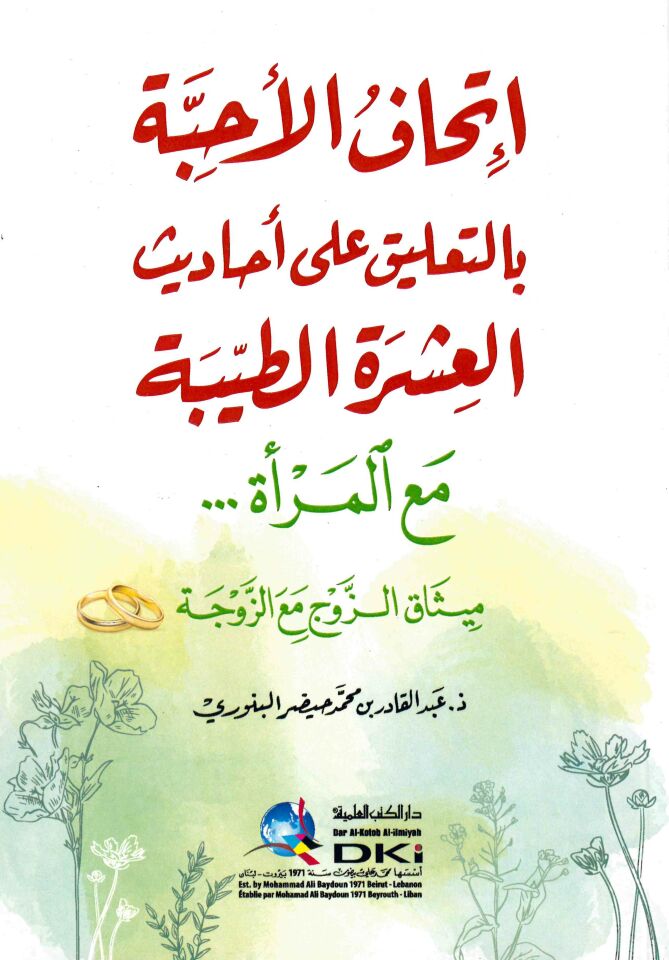 إتحاف الأحِبَّة
بالتعليق على أحاديث
العِشرَة الطيّبَة
مَع المَرْأة ...
مِيثَاق الزَّوْج مَعَ الزَّوْجَة
ذ. عَبد القادر بن محمَّد حيضر البنوري
دار الكتب العلمية
Dar Al-Kotob Al-ilmiyah
DKi
أسسها محمد علي بيضون سنة 1971 بيروت - لبنان
Est. by Mohammad Ali Baydoun 1971 Beirut - Lebanon
Établie par Mohamad Ali Baydoun 1971 Beyrouth - Liban